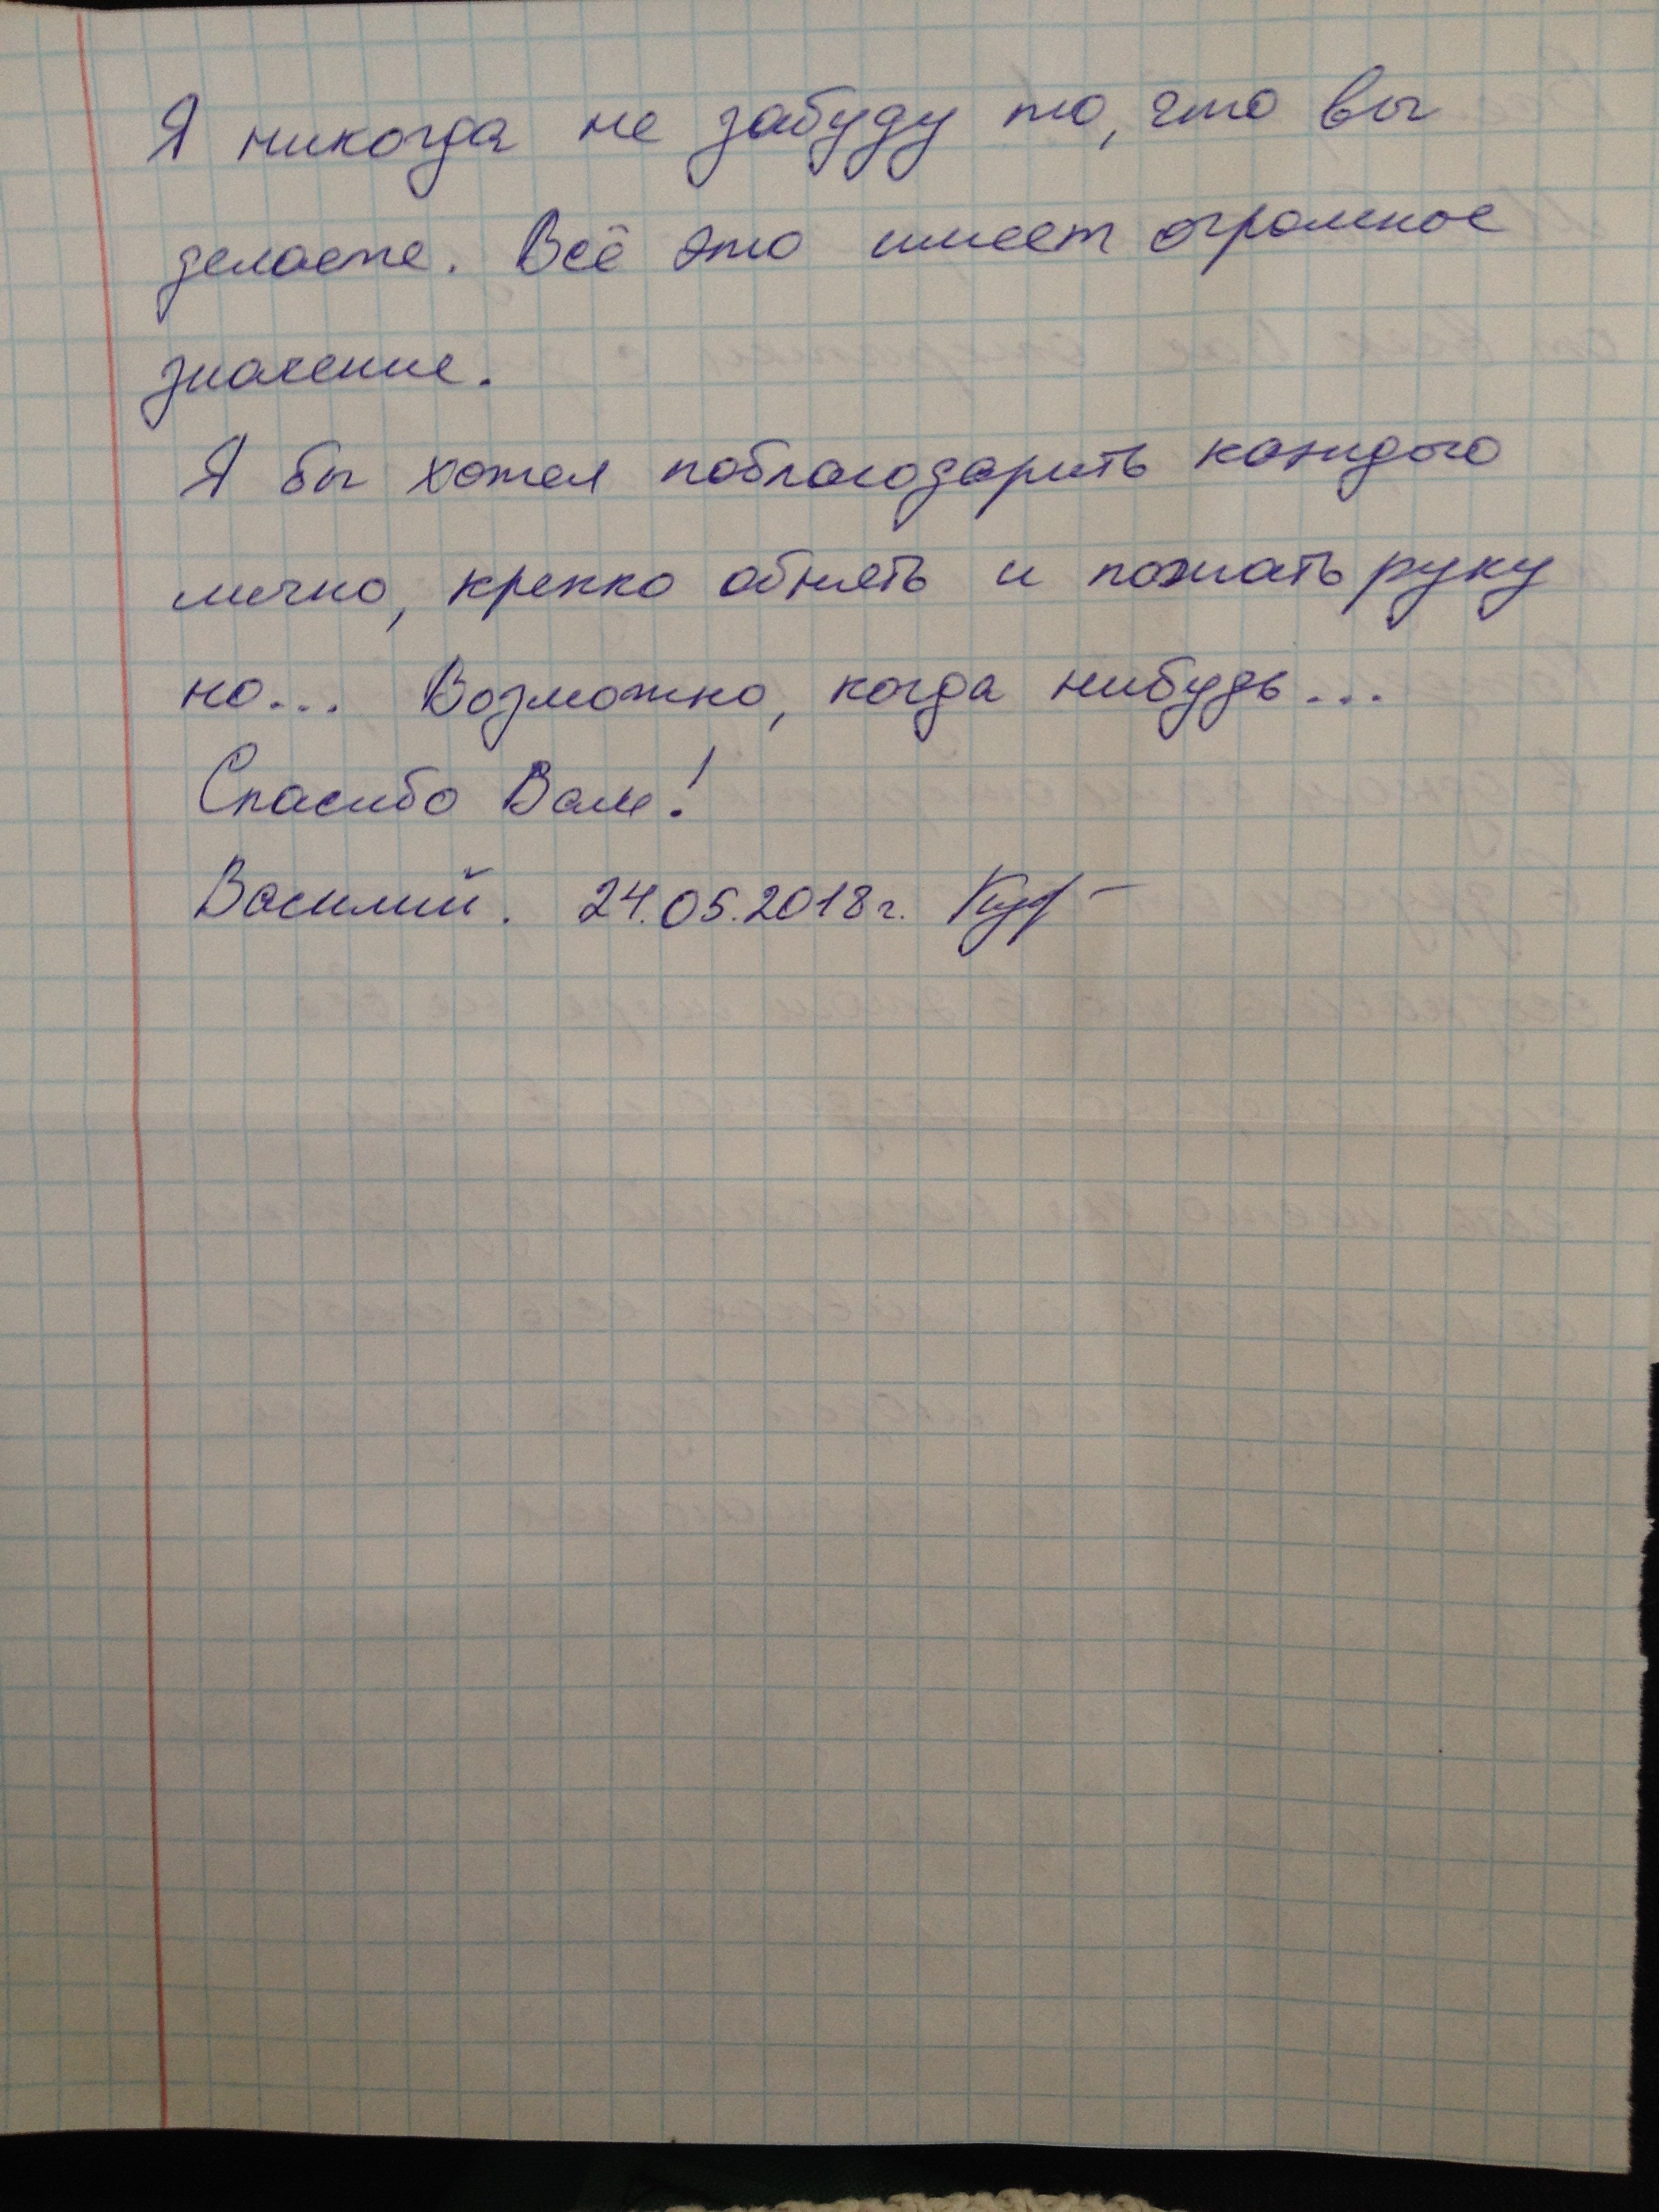 Я никогда не забуду то, что вы
делаете. Всё это имеет огромное
значение.
Я бы хотел поблагодарить каждого
лично, крепко обнять и пожать руку
но... Возможно, когда нибудь...
Спасибо Вам!
Василий. 24.05.2018г.